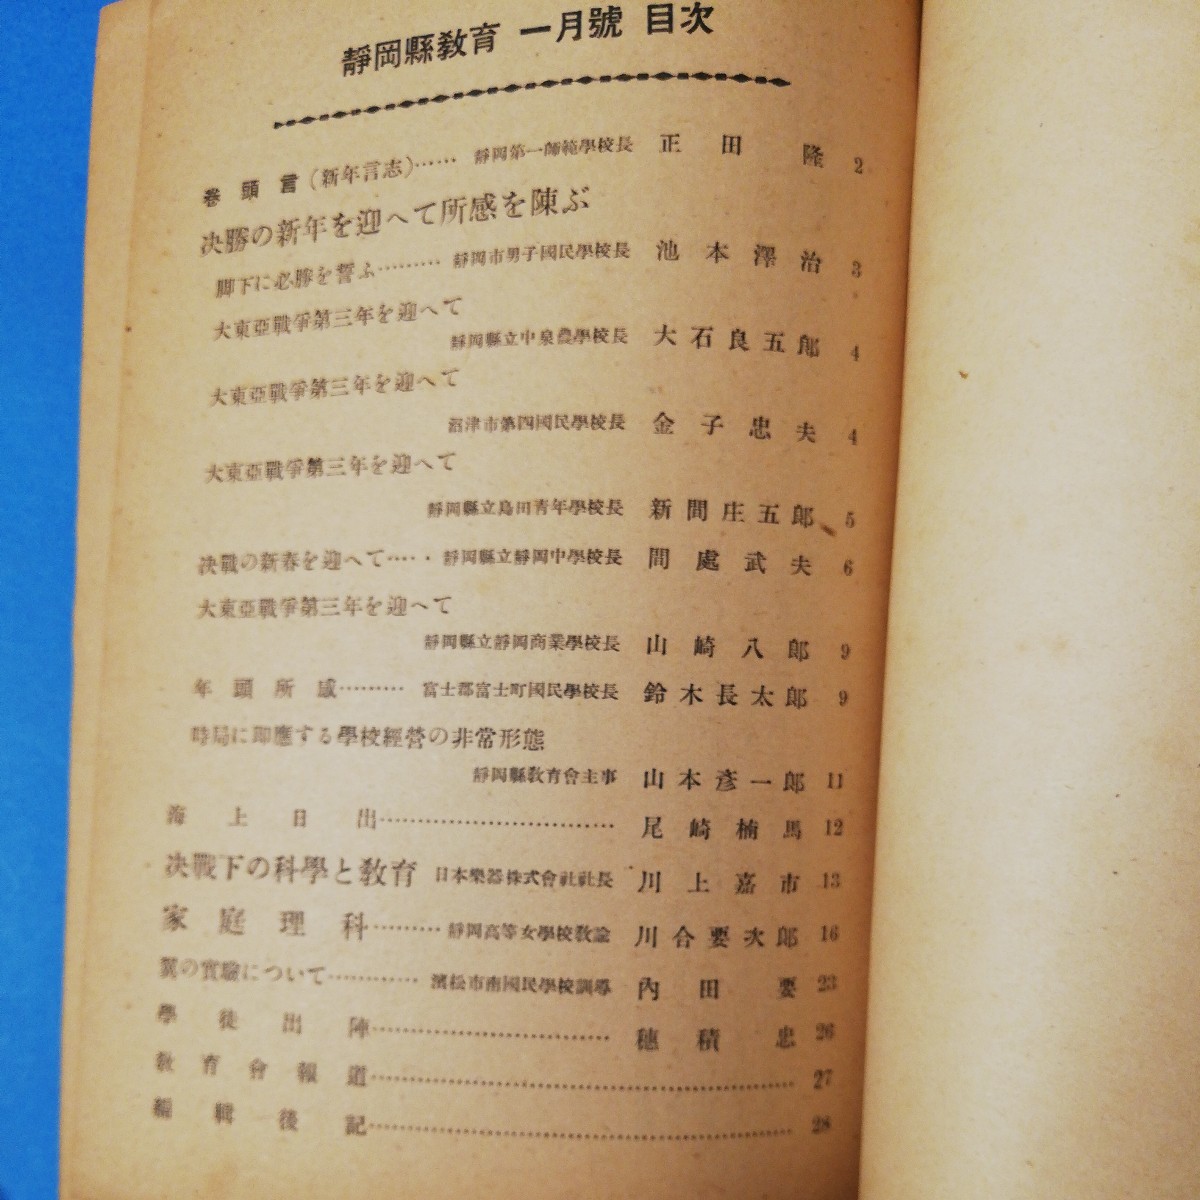 靜岡縣教育 一月號 目次
卷頭言(新年言志)…… 靜岡第一師範學校長 正田隆 2
決勝の新年を迎へて所感を陳ぶ
脚下に必勝を誓ふ……… 靜岡市男子國民學校長 池本澤治 3
大東亞戰爭第三年を迎へて
靜岡縣立中泉農學校長 大石良五郎 4
大東亞戰爭第三年を迎へて
沼津市第四國民學校長 金子忠夫 4
大東亞戰爭第三年を迎へて
靜岡縣立島田青年學校長 新間庄五郎 5
決戰の新春を迎へて…‥ 靜岡縣立靜岡中學校長 間處武夫 6
大東亞戰爭第三年を迎へて
靜岡縣立靜岡商業學校長 山崎八郎 9
年頭所感……… 富士郡富士町國民學校長 鈴木長太郎 9
時局に即應する學校經營の非常形態
靜岡縣教育會主事 山本彥一郎 11
海上日出………………………… 尾崎楠馬 12
決戰下の科學と教育 日本樂器株式會社社長 川上嘉市 13
家庭理科……… 靜岡高等女學校教諭 川合要次郎 16
翼の實驗について………… 濱松市南國民學校訓導 內田要 23
學徒出陣………………………… 穗積忠 26
教育會報道……………………………………………… 27
編輯後記……………………………………………… 28